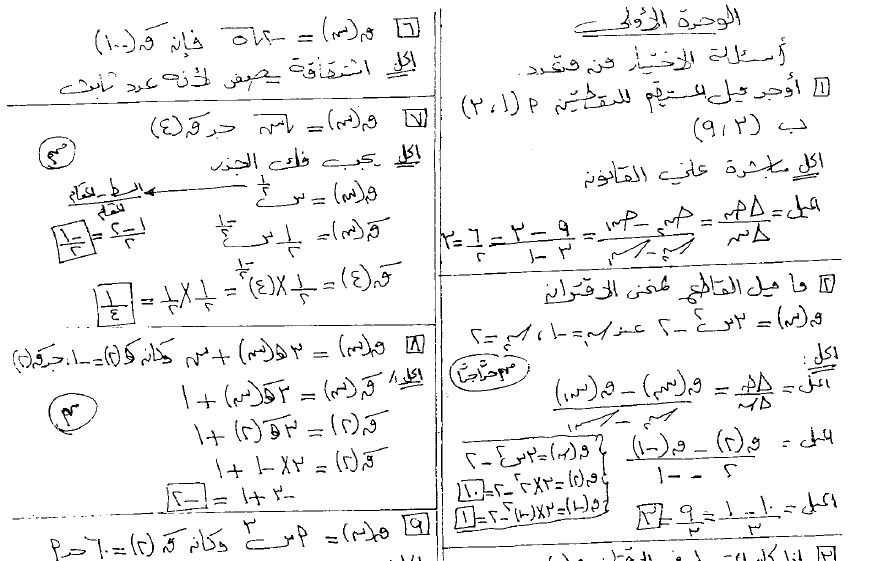 الوحدة الأولى
أسئلة الاختيار من متعدد
١ أوجد ميل المستقيم للنقطتين م (١، ٣)
ب (٣، ٩)
الحل مباشرة على القانون
الميل = Δص / Δس = (ص٢ - ص١) / (س٢ - س١) = (٩ - ٣) / (٣ - ١) = ٦/٢ = ٣
٢ ما ميل القاطع لمنحنى الاقتران
ق(س) = ٣س٢ - ٢ عند س١ = -١، س٢ = ٢
الحل:
الميل = Δص / Δس = (ق(س٢) - ق(س١)) / (س٢ - س١)
الميل = (ق(٢) - ق(-١)) / (٢ - -١)
ق(س) = ٣س٢ - ٢
ق(٢) = ٣×٢٢ - ٢ = ١٠
ق(-١) = ٣×(-١)٢ - ٢ = ١
الميل = (١٠ - ١) / ٣ = ٩/٣ = ٣
٦ ق(س) = -٢√٥ فإن قَ(-١٠٠)
الحل اشتقاقه يصفر لأنه عدد ثابت
٧ ق(س) = √س جد قَ(٤)
الحل يجب فك الجذر
ق(س) = س^١/٢
البسط - المقام / المقام
قَ(س) = ١/٢ س^-١/٢
(١ - ٢) / ٢ = -١/٢
قَ(٤) = ١/٢ × (٤)^-١/٢ = ١/٢ × ١/٢ = ١/٤
٨ ق(س) = ٣هـ(س) + س وكان هـَ(٢) = -١، جد قَ(٢)
الحل:
قَ(س) = ٣هـَ(س) + ١
قَ(٢) = ٣هـَ(٢) + ١
قَ(٢) = ٣ × -١ + ١
-٣ + ١ = -٢
٩ ق(س) = م س٣ وكان قَ(٢) = ٦٠ جد م